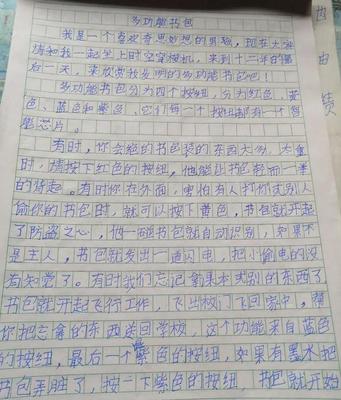 多功能书包
我是一个喜欢奇思妙想的男孩，现在大家
请和我一起坐上时空穿梭机，来到十二年的最
后一天，来欣赏我发明的多功能书包吧！
多功能书包分为四个按钮，分为红色、黄
色、蓝色和紫色，它们每一个按钮都有一个智
能芯片。
有时，你会觉的书包装的东西太多、太重
时，请按下红色的按钮，他能让书包轻而一举
的背起。有时你在外面，害怕有人打你或别人
偷你的书包时，就可以按下黄色，书包就开起
了防盗之心，他一碰书包就自动识别，如果不
是主人，书包就发出一道闪电，把小偷电的没
有知觉了。有时我们忘记拿课本或别的东西了
书包就开起飞行工作，飞出校门飞回家中，帮
你把忘拿的东西送回学校，这个功能来自蓝色
的按钮，最后一个紫色的按钮，如果有墨水把
书包弄脏了，按一下紫色的按钮，书包就开始